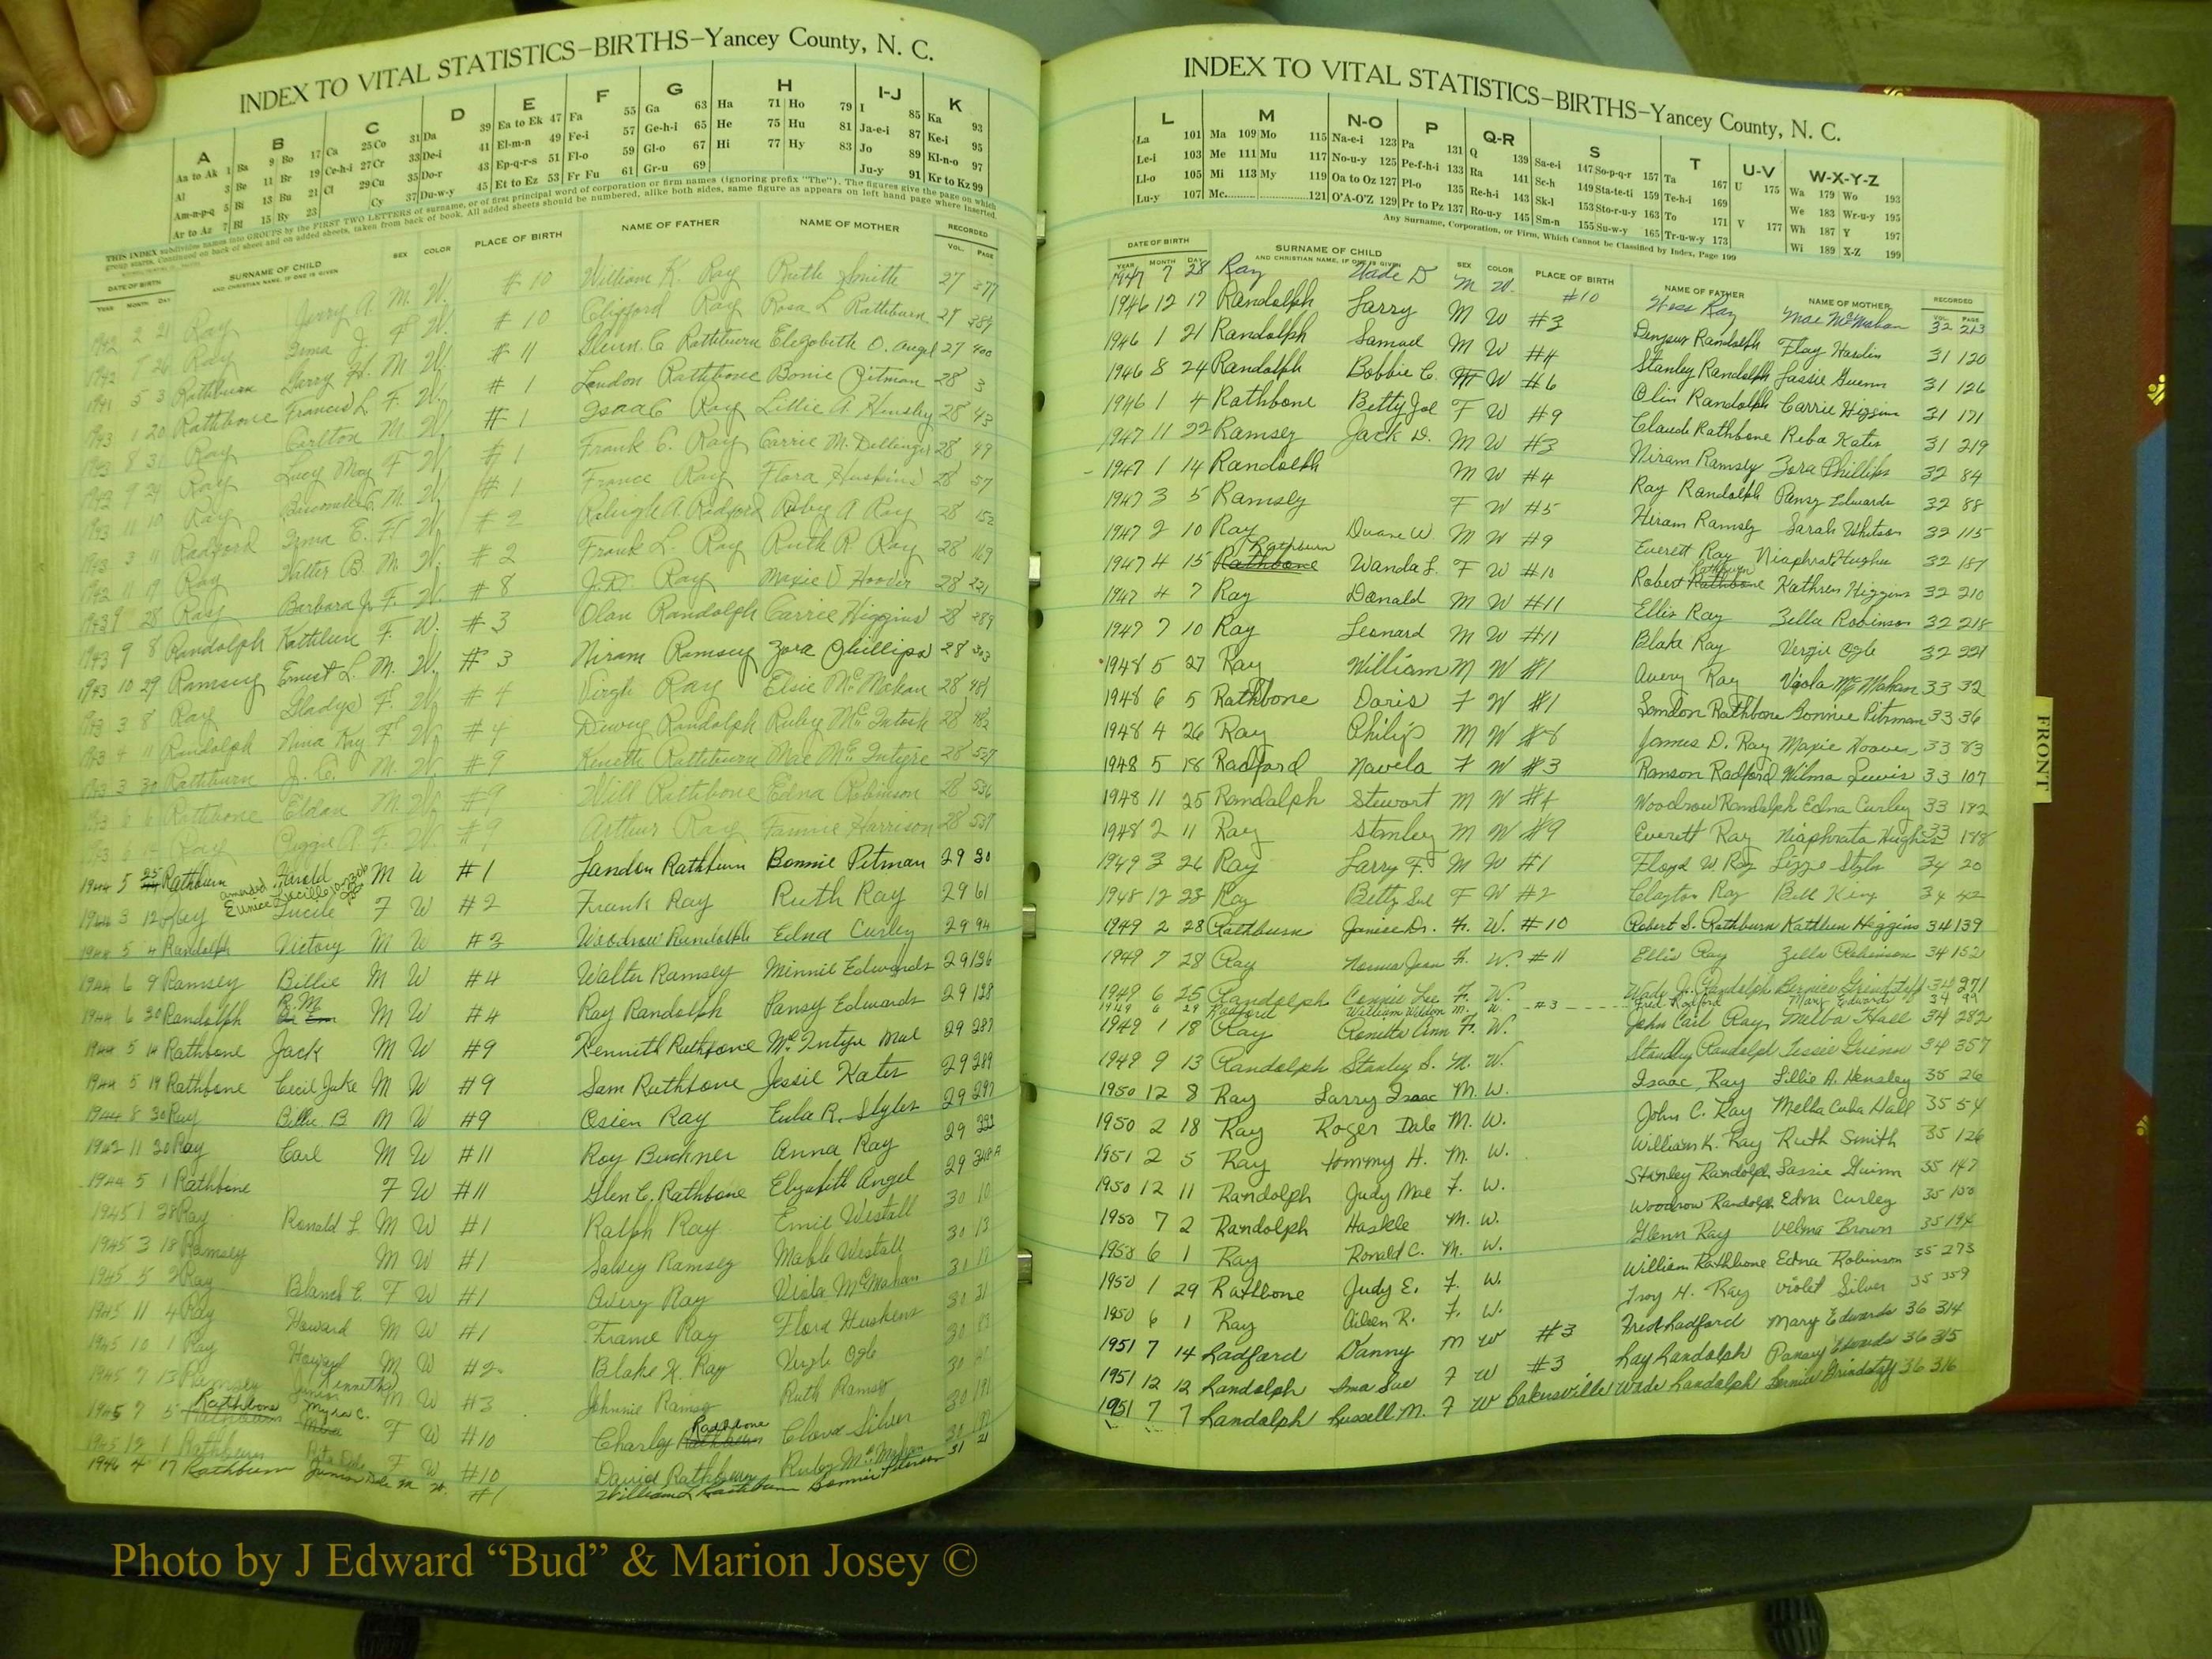 INDEX TO VITAL STATISTICS–BIRTHS–Yancey County, N. C.
A B C D E F G H I-J K
Aa to Ak 1 Ba 9 Bo 17 Ca 25 Co 31 Da 39 Ea to Ek 47 Fa 55 Ga 63 Ha 71 Ho 79 I 85 Ka 93
Al 3 Be 11 Br 19 Ce-h-i 27 Cr 33 De-i 41 El-m-n 49 Fe-i 57 Ge-h-i 65 He 75 Hu 81 Ja-e-i 87 Ke-i 95
Am-n-p-q 5 Bi 13 Bu 21 Cl 29 Cu 35 Do-r 43 Ep-q-r-s 51 Fl-o 59 Gl-o 67 Hi 77 Hy 83 Jo 89 Kl-n-o 97
Ar to Az 7 Bl 15 By 23 Cy 37 Du-w-y 45 Et to Ez 53 Fr Fu 61 Gr-u 69 Ju-y 91 Kr to Kz 99
THIS INDEX subdivides names into GROUPS by the FIRST TWO LETTERS of surname, or of first principal word of corporation or firm names (ignoring prefix "The"). The figures give the page on which
group starts. Continued on back of sheet and on added sheets, taken from back of book. All added sheets should be numbered, alike both sides, same figure as appears on left hand page where inserted.
DATE OF BIRTH SURNAME OF CHILD SEX COLOR PLACE OF BIRTH NAME OF FATHER NAME OF MOTHER RECORDED
YEAR MONTH DAY AND CHRISTIAN NAME, IF ONE IS GIVEN VOL. PAGE
1942 2 21 Ray Jerry A. M. W. #10 William K. Ray Ruth Smith 27 377
1942 7 26 Ray Irma J. F W. #10 Clifford Ray Rosa L Rathburn 27 389
1941 5 3 Rathburn Jerry H. M W. #11 Glenn C Rathburn Elezabeth O. Angel 27 400
1943 1 20 Rathbone Francis L F. W. #1 Landon Rathbone Bonie Pitman 28 3
1943 8 31 Ray Carlton M W. #1 Isaac Ray Lillie A Hensley 28 43
1943 9 24 Ray Lucy May F W. #1 Frank C. Ray Carrie M. Dellinger 28 49
1943 11 10 Ray M. W. #1 France Ray Flora Huskins 28 57
1943 3 11 Radford Irma E. F W. #2 Raleigh A Radford Ruby A Ray 28 152
1942 11 19 Ray Walter B M. W. #2 Frank L. Ray Ruth R Ray 28 169
1943 9 28 Ray Barbara J. F. W. #8 J.D. Ray Maxie V Hoover 28 221
1943 9 8 Randolph Kathleen F. W. #3 Olan Randolph Carrie Higgins 28 289
1943 10 29 Ramsey Ernest L. M. W. #3 Niram Ramsey Zora Phillips 28 303
1943 3 8 Ray Gladys F. W. #4 Virgle Ray Elsie McMahan 28 481
1943 4 11 Randolph Nina Kay F W. #4 Dewey Randolph Ruby McIntosh 28 482
1943 3 30 Rathburn J. C. M. W. #9 Kenneth Rathburn Mae McIntyre 28 527
1943 6 6 Rathbone Eldon M. W. #9 Will Rathbone Edna Robinson 28 536
Ray Peggie A F. W. #9 Arthur Ray Fannie Harrison 28 537
1944 5 25 Rathburn Harold M W #1 Landon Rathburn Bonnie Pitman 29 30
amended Eunice Lucille
1944 3 12 Ray Lucile F W #2 Frank Ray Ruth Ray 29 61
1944 5 4 Randolph Victory M W #3 Woodrow Randolph Edna Curley 29 94
1944 6 9 Ramsey Billie M W #4 Walter Ramsey Minnie Edwards 29 126
1944 6 30 Randolph R. M. M W #4 Ray Randolph Pansy Edwards 29 128
1944 5 14 Rathbone Jack M W #9 Kennith Rathbone McIntyre Mae 29 287
1944 5 19 Rathbone Cecil Jake M W #9 Sam Rathbone Jessie Kates 29 289
1944 8 30 Ray Billie B M W #9 Osien Ray Eula R. Styles 29 297
1942 11 30 Ray Carl M W #11 Roy Buckner Anna Ray 29 333
1944 5 1 Rathbone F W #11 Glen C. Rathbone Elizabeth Angel 29 348A
1945 1 28 Ray Ronald L M W #1 Ralph Ray Emil Westall 30 10
1945 3 18 Ramsey M W #1 Ramsey Mable Westall 30 13
1945 5 2 Ray Blanch E F W #1 Avery Ray Viola McMahan 30 18
1945 11 4 Ray Howard M W #1 Frame Ray Flora Huskens 30 31
1945 10 1 Ray Howard M W #2 Blake K. Ray Vergle Ogle 30 83
1945 7 13 Ramsey Junior Kenneth M W #3 Johnnie Ramsey Ruth Ramsey 30
1945 7 5 Rathbone Myra C. F W #10 Charley Rathbone Clova Silver 30 191
1945 12 1 Rathburn F W #10 David Rathburn Ruby McMahan 30
1946 4 17 Rathburn Junior Dale M W. #1 William L Rathburn Bonnie Peterson 31 21
INDEX TO VITAL STATISTICS–BIRTHS–Yancey County, N. C.
L M N-O P Q-R S T U-V W-X-Y-Z
La 101 Ma 109 Mo 115 Na-e-i 123 Pa 131 Q 139 Sa-e-i 147 So-p-q-r 157 Ta 167 U 175 Wa 179 Wo 193
Le-i 103 Me 111 Mu 117 No-u-y 125 Pe-f-h-i 133 Ra 141 Sc-h 149 Sta-te-ti 159 Te-h-i 169 We 183 Wr-u-y 195
Ll-o 105 Mi 113 My 119 Oa to Oz 127 Pl-o 135 Re-h-i 143 Sk-l 153 Sto-r-u-y 163 To 171 V 177 Wh 187 Y 197
Lu-y 107 Mc 121 O'A-O'Z 129 Pr to Pz 137 Ro-u-y 145 Sm-n 155 Su-w-y 165 Tr-u-w-y 173 Wi 189 X-Z 199
Any Surname, Corporation, or Firm, Which Cannot be Classified by Index, Page 199
DATE OF BIRTH SURNAME OF CHILD SEX COLOR PLACE OF BIRTH NAME OF FATHER NAME OF MOTHER RECORDED
YEAR MONTH DAY AND CHRISTIAN NAME, IF ONE IS GIVEN VOL. PAGE
1947 7 28 Ray Wade D M W. #10 Hess Ray Mae McMahan 32 213
1946 12 17 Randolph Larry M W #3 Randolph Flay Hardin 31 120
1946 1 21 Randolph Samuel M W #4 Stanley Randolph Jassie Guenn 31 126
1946 8 24 Randolph Bobbie C. W #6 Olin Randolph Carrie Higgins 31 171
1946 1 4 Rathbone Betty Joe F W #9 Claude Rathbone Reba Kates 31 219
1947 11 22 Ramsey Jack D. M W #3 Niram Ramsey Zora Phillips 32 84
1947 1 14 Randolph M W #4 Ray Randolph Pansy Edwards 32 88
1947 3 5 Ramsey F W #5 Hiram Ramsey Sarah Whitson 32 115
1947 2 10 Ray Duane W. M W #9 Everett Ray Niaphrat Hughes 32 187
1947 4 15 Rathbone Rathburn Wanda L. F W #10 Robert Rathbone Rathburn Kathren Higgins 32 210
1947 4 7 Ray Donald M W #11 Ellis Ray Zella Robinson 32 218
1947 7 10 Ray Leonard M W #11 Blake Ray Vergie Ogle 32 221
1948 5 27 Ray William M W #1 Avery Ray Viola McMahan 33 32
1948 6 5 Rathbone Doris F W #1 Landon Rathbone Bonnie Pitman 33 36
1948 4 26 Ray Philip M W #8 James D. Ray Maxie Hoover 33 83
1948 5 18 Radford Navela F W #3 Ranson Radford Wilma Lewis 33 107
1948 11 25 Randolph Stewart M W #4 Woodrow Randolph Edna Curley 33 182
1948 2 11 Ray Stanley M W #9 Everett Ray Niaphrata Hughes 33 188
1949 3 26 Ray Larry F. M W #1 Floyd W. Ray Lizze Styles 34 20
1948 12 23 Ray Betty Sue F W #2 Clayton Ray Bell King 34 42
1949 2 28 Rathburn Janice Dr. F. W. #10 Robert S. Rathburn Kathleen Higgins 34 139
1949 7 28 Ray Norma Jean F. W. #11 Ellis Ray Zella Robinson 34 152
1949 6 25 Randolph Connie Lee F. W. Wade J. Randolph Bernice Grindstaff 34 271
1949 6 29 Radford William Weldon M. W. #3 Fred Radford Mary Edwards 34 99
1949 1 18 Ray Renetta Ann F. W. John Carl Ray Melba Hall 34 282
1949 9 13 Randolph Stanley S. M. W. Standley Randolph Jessie Guinn 34 357
1950 12 8 Ray Larry Isaac M. W. Isaac Ray Lillie A. Hensley 35 26
1950 2 18 Ray Roger Dale M. W. John C. Ray Melba Cuba Hall 35 54
1951 2 5 Ray Tommy H. M. W. William K. Ray Ruth Smith 35 126
1950 12 11 Randolph Judy Mae F. W. Stanley Randolph Sassie Guinn 35 147
1950 7 2 Randolph Haskle M. W. Woodrow Randolph Edna Curley 35 150
1950 6 1 Ray Ronald C. M. W. Glenn Ray Velma Brown 35 194
1950 1 29 Rathbone Judy E. F. W. William Rathbone Edna Robinson 35 273
1950 6 1 Ray Aileen R. F. W. Troy H. Ray Violet Silver 35 359
1951 7 14 Radford Danny M W #3 Fred Radford Mary Edwards 36 314
1951 12 12 Randolph Ima Sue F W #3 Ray Randolph Pansy Edwards 36 315
1951 7 7 Randolph Russell M. F W Bakersville Wade Randolph Bernice Grindstaff 36 316
FRONT
Photo by J Edward “Bud” & Marion Josey ©